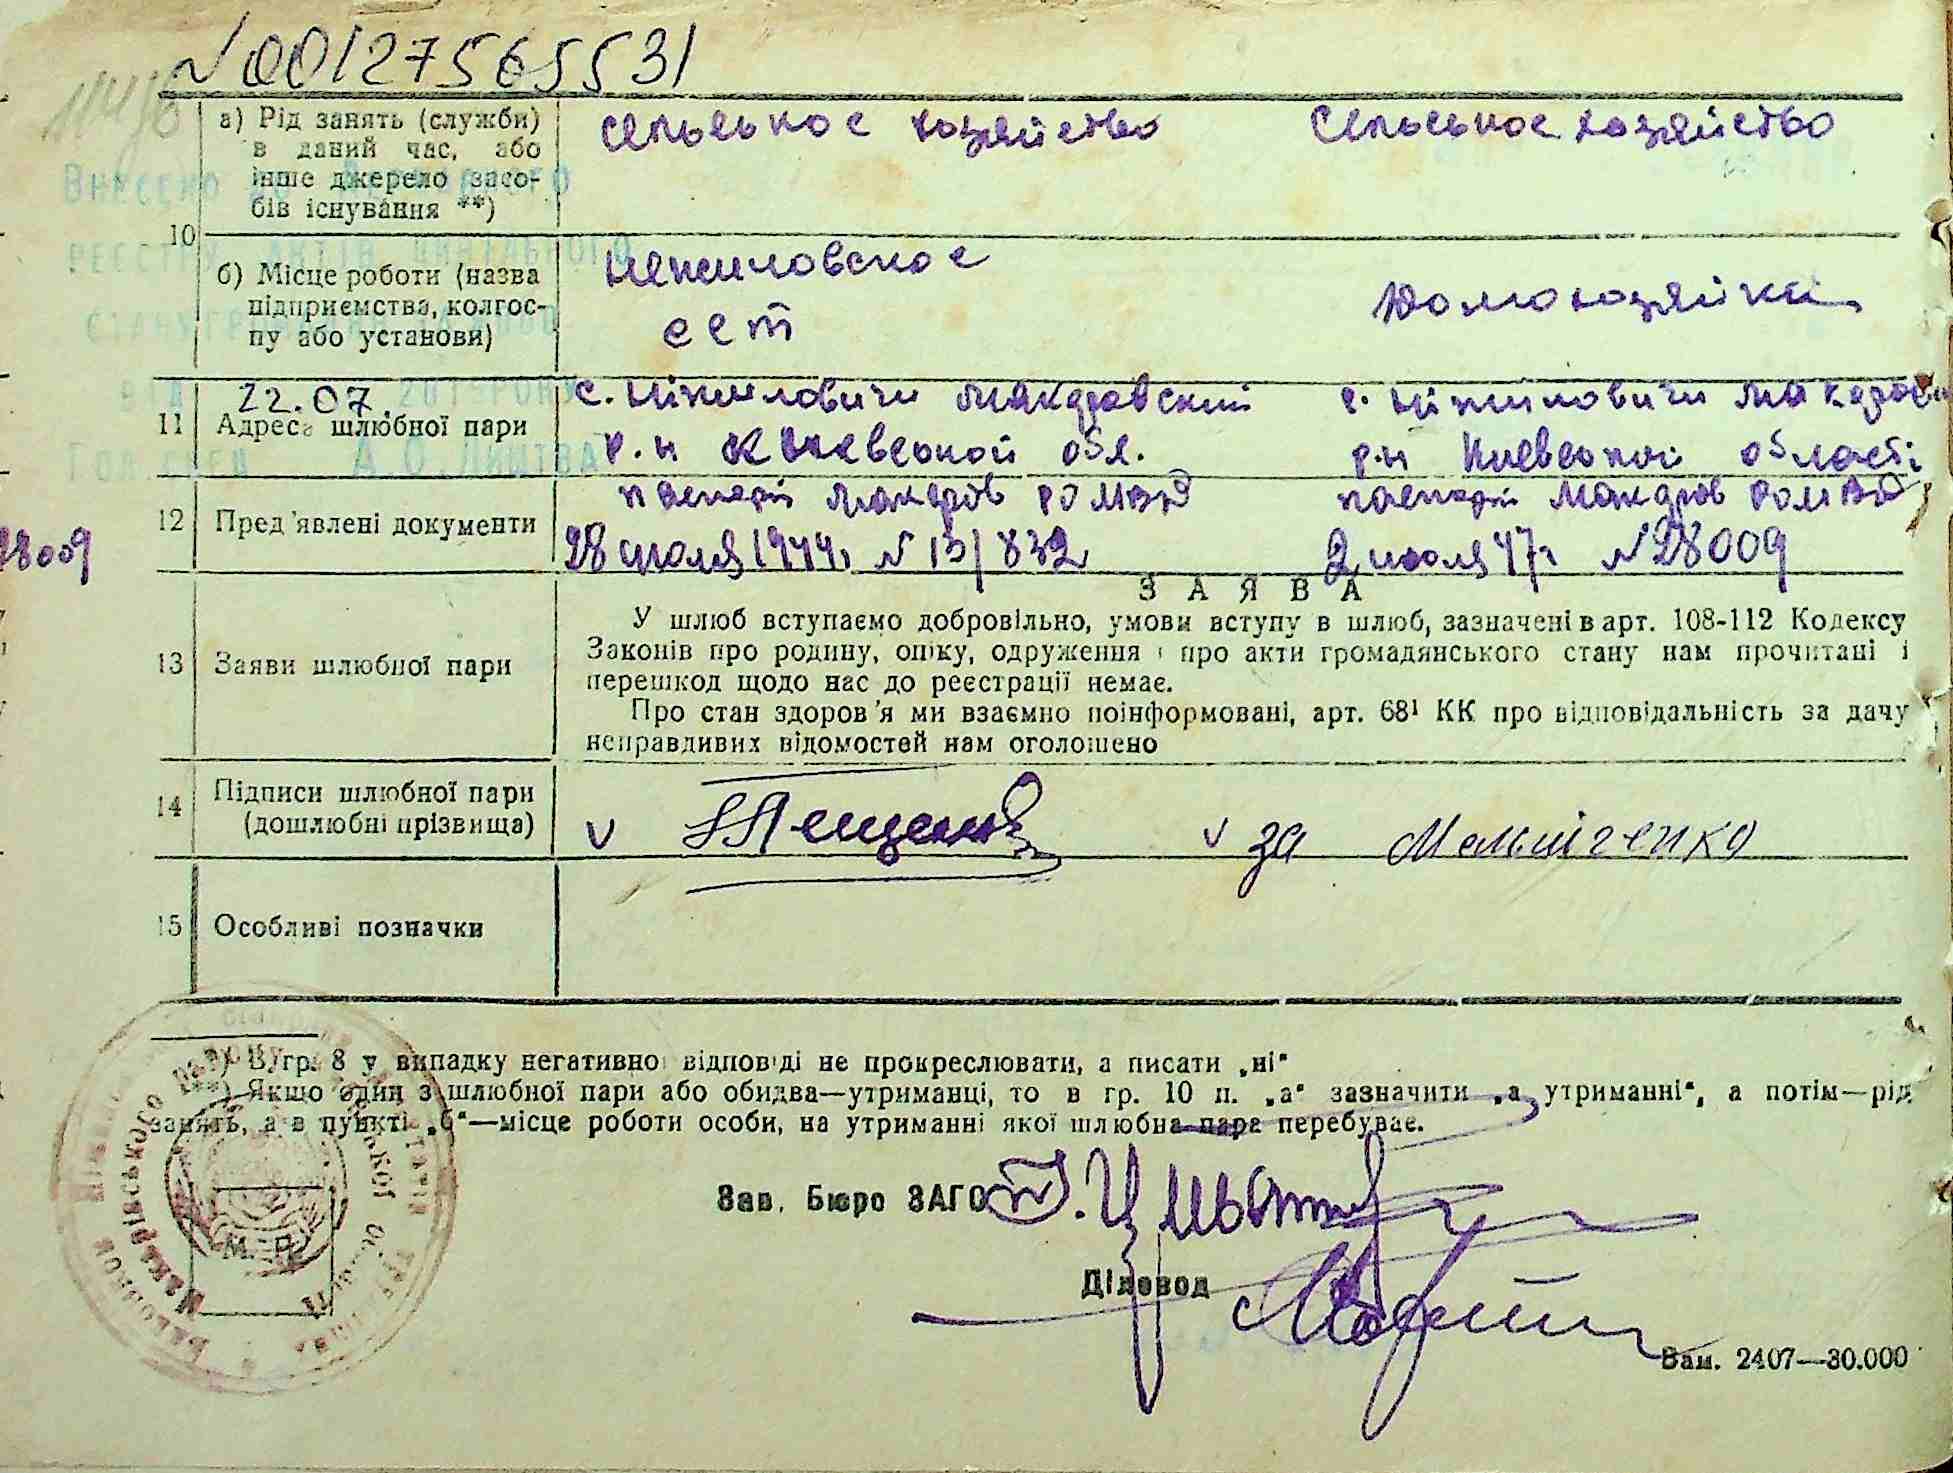 N 00127565531
а) Рід занять (служби) в даний час, або інше джерело засобів існування **)
сельськое хозяйство
Сельськое хозяйство
Внесено до Державного
реєстру актів цивільного
10
б) Місце роботи (назва підприємства, колгоспу або установи)
нежиловское
сст
Домохозяйка
22.07. 2015 року
11
Адреса шлюбної пари
с. Ніжиловичи Макаровский
р.н Киевськой обл.
с. Ніжиловичи Макаровский
р.н Киевськой області
А.О. Лиштва
12
Пред'явлені документи
паспорт Макаров РОМВД
28 июля 1944г N 13/832
паспорт Макаров РОМВД
2 июля 47г N 28009
28009
З А Я В А
13
Заяви шлюбної пари
У шлюб вступаємо добровільно, умови вступу в шлюб, зазначені в арт. 108-112 Кодексу
Законів про родину, опіку, одруження і про акти громадянського стану нам прочитані і
перешкод щодо нас до реєстрації немає.
Про стан здоров'я ми взаємно поінформовані, арт. 68¹ КК про відповідальність за дачу
неправдивих відомостей нам оголошено
14
Підписи шлюбної пари
(дошлюбні прізвища)
v
v за Мельниченко
15
Особливі позначки
*) В гр. 8 у випадку негативної відповіді не прокреслювати, а писати „ні"
**) Якщо один з шлюбної пари або обидва—утриманці, то в гр. 10 п. „а" зазначити „а утриманні", а потім—рід
занять, а в пункті „б"—місце роботи особи, на утриманні якої шлюбна пара перебуває.
Зав. Бюро ЗАГС
М. П.
Діловод
Зам. 2407—30.000